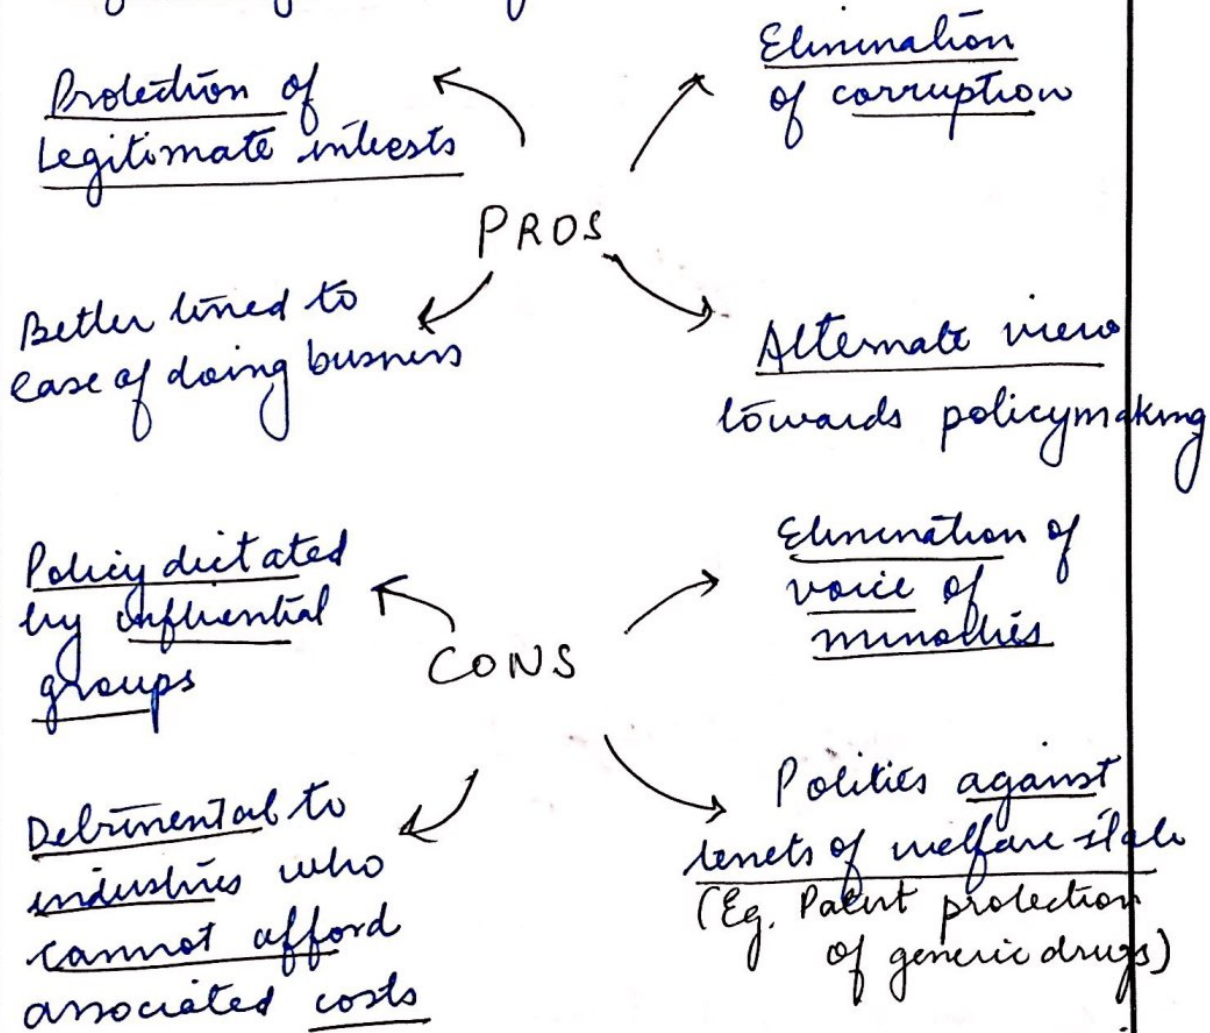 Protection of
Legitimate inteests
Elimination
of corruption
PROS
Better lined to
ease of doing busness
Alternate view
towards policymaking
Policy dictated
by influential
groups
Elimination of
voice of
minorities
CONS
Detrimental to
industries who
cannot afford
associated costs
Polities against
tenets of welfare state
(Eg. Patent protection
of generic drugs)